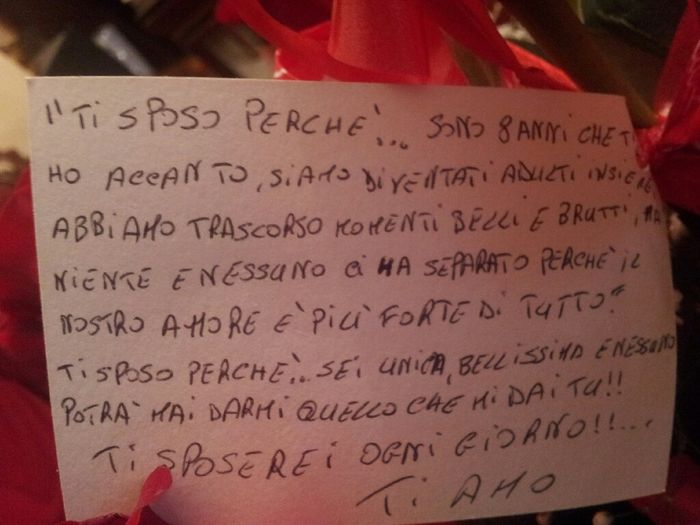 "TI SPOSO PERCHE'... SONO 8 ANNI CHE TI
HO ACCANTO, SIAMO DIVENTATI ADULTI INSIEME
ABBIAMO TRASCORSO MOMENTI BELLI E BRUTTI, MA
NIENTE E NESSUNO CI HA SEPARATO PERCHE' IL
NOSTRO AMORE E' PIU' FORTE DI TUTTO!"
TI SPOSO PERCHE'... SEI UNICA, BELLISSIMA E NESSUNO
POTRA' MAI DARMI QUELLO CHE MI DAI TU!!
TI SPOSEREI OGNI GIORNO!!...
TI AMO